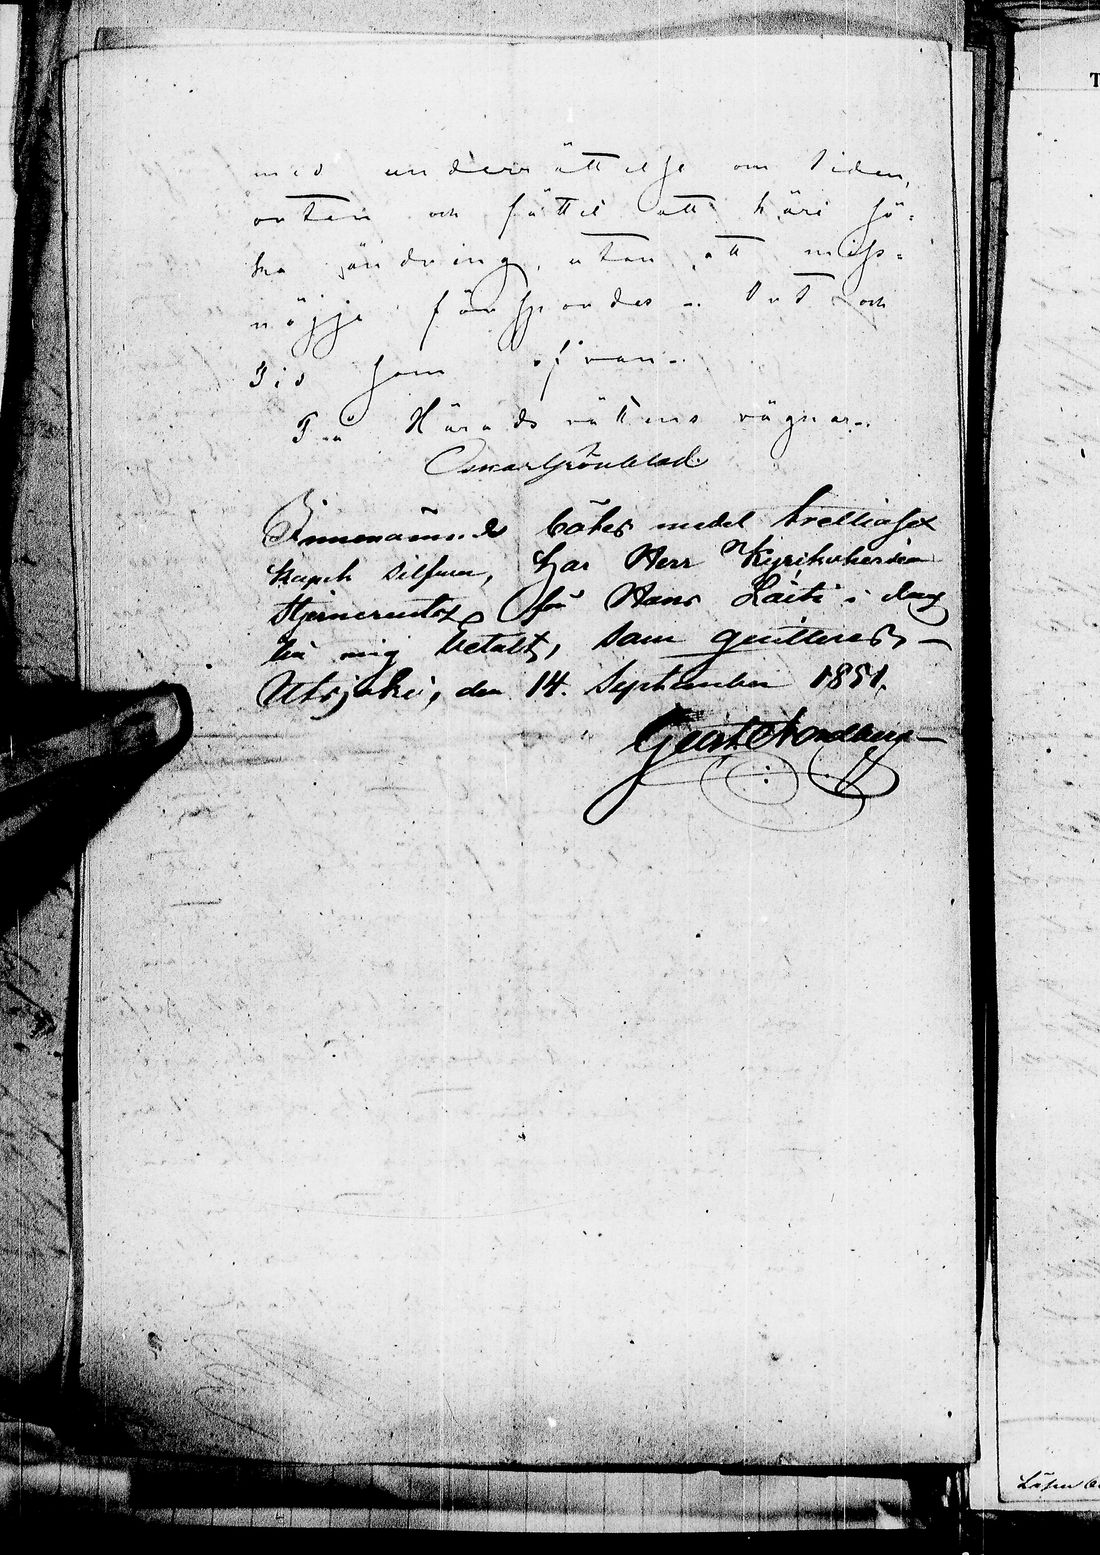 med underrättelse om tiden,
orten och sättet att häri sö-
ka ändring, utan att miss-
nöje försspordes. Ort och
Tid som ofvan.
På Häradsrättens vägnar.
Oscar Grönblad.
böter medel trettiosex
kopek silfver, har Herr Kyrkoherden
Stjerncreutz för Hans Laiti i dag
till mig betalt, som quitteras, -
Utsjoki, den 14. September 1851.
Gust
T